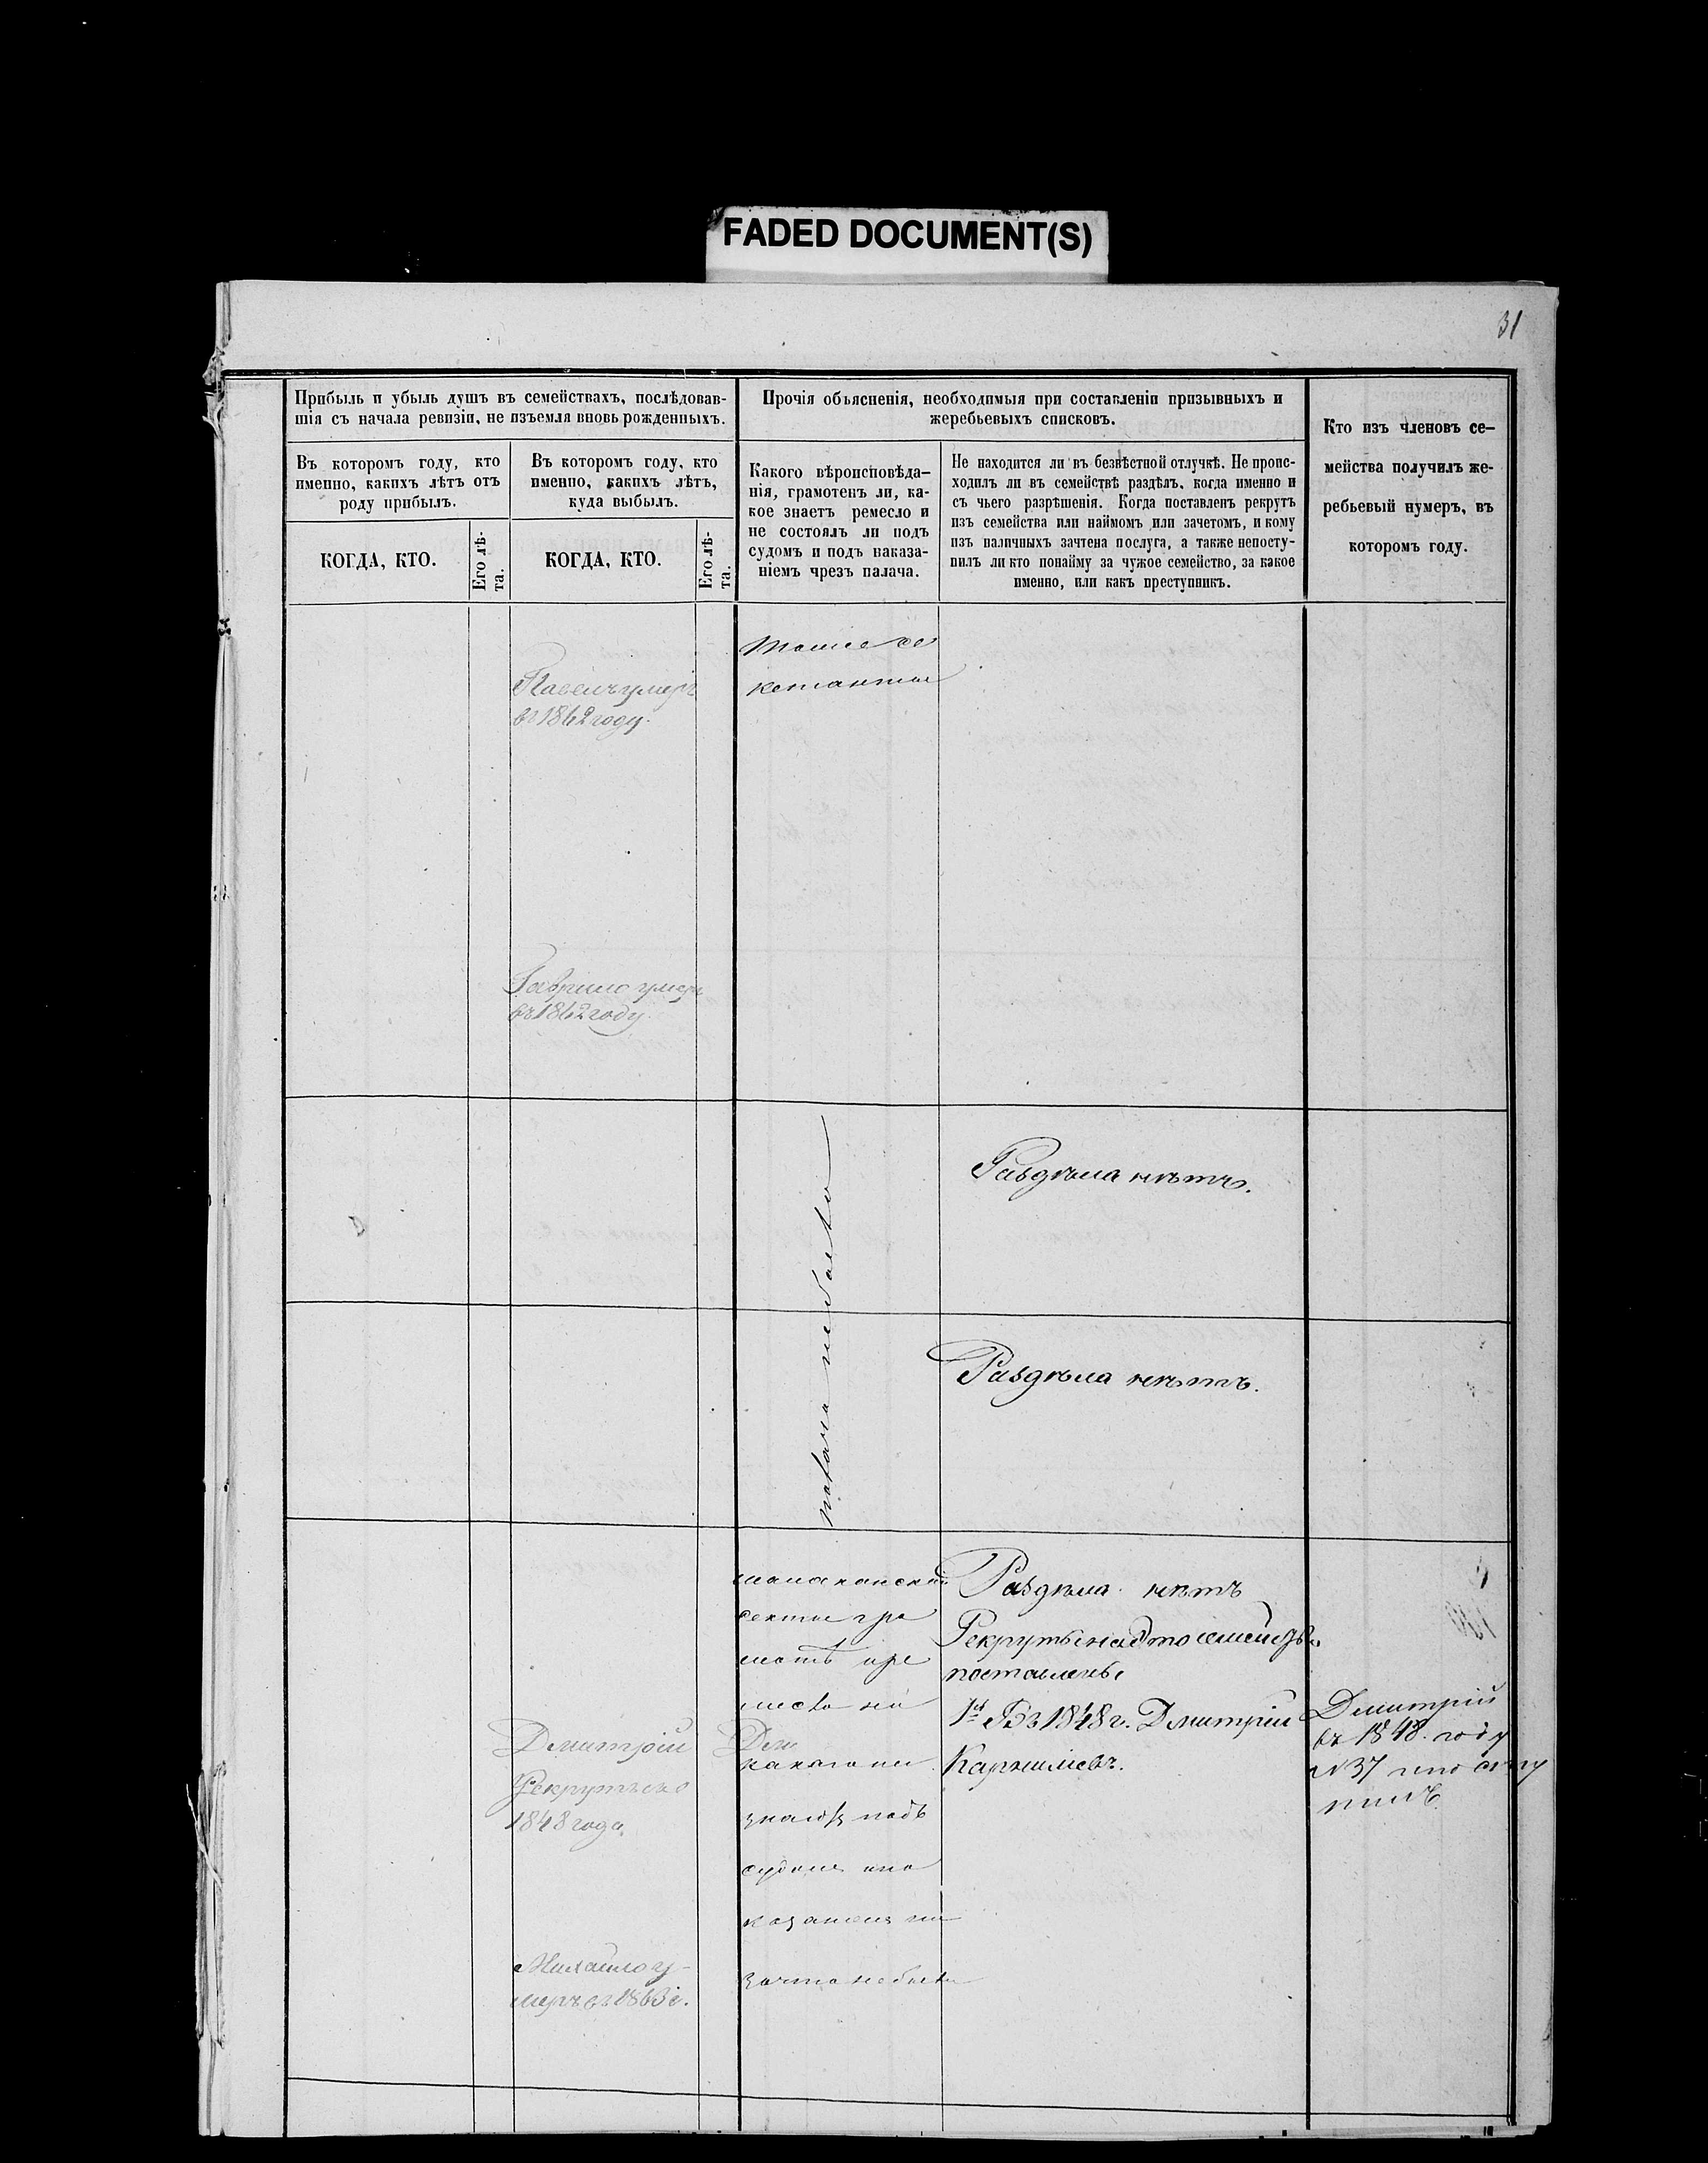 FADED DOCUMENT(S)
31
Прибыль и убыль душъ въ семействахъ, послѣдовав-
шія съ начала ревизіи, не изъемля вновь рожденныхъ.
Прочія объясненія, необходимыя при составленіи призывныхъ и
жеребьевыхъ списковъ.
Кто изъ членовъ се-
мейства получилъ же-
ребьевый нумеръ, въ
которомъ году.
Въ которомъ году, кто
именно, какихъ лѣтъ отъ
роду прибылъ.
Въ которомъ году, кто
именно, какихъ лѣтъ,
куда выбылъ.
Какого вѣроисповѣда-
нія, грамотенъ ли, ка-
кое знаетъ ремесло и
не состоялъ ли подъ
судомъ и подъ наказа-
ніемъ чрезъ палача.
Не находится ли въ безвѣстной отлучкѣ. Не проис-
ходилъ ли въ семействѣ раздѣлъ, когда именно и
съ чьего разрѣшенія. Когда поставленъ рекрутъ
изъ семейства или наймомъ или зачетомъ, и кому
изъ наличныхъ зачтена послуга, а также непосту-
пилъ ли кто понайму за чужое семейство, за какое
именно, или какъ преступникъ.
КОГДА, КТО.
Его лѣ-
та.
КОГДА, КТО.
Его лѣ-
та.
умеръ
въ 1862 году.
Гаврило умеръ
въ 1862 году.
Раздѣла нѣтъ.
Раздѣла нѣтъ.
молоканской
секты гра
месла на
какого не
знаютъ подъ
судомъ и на
Раздѣла нѣтъ
поставлены
1й Въ 1848 г. Дмитрій
Карнилѣевъ.
Дмитрій
въ 1848. году
N 37
Дмитрій
Рекрутъ съ
1848 года.
Михайло у-
меръ въ 1863 г.